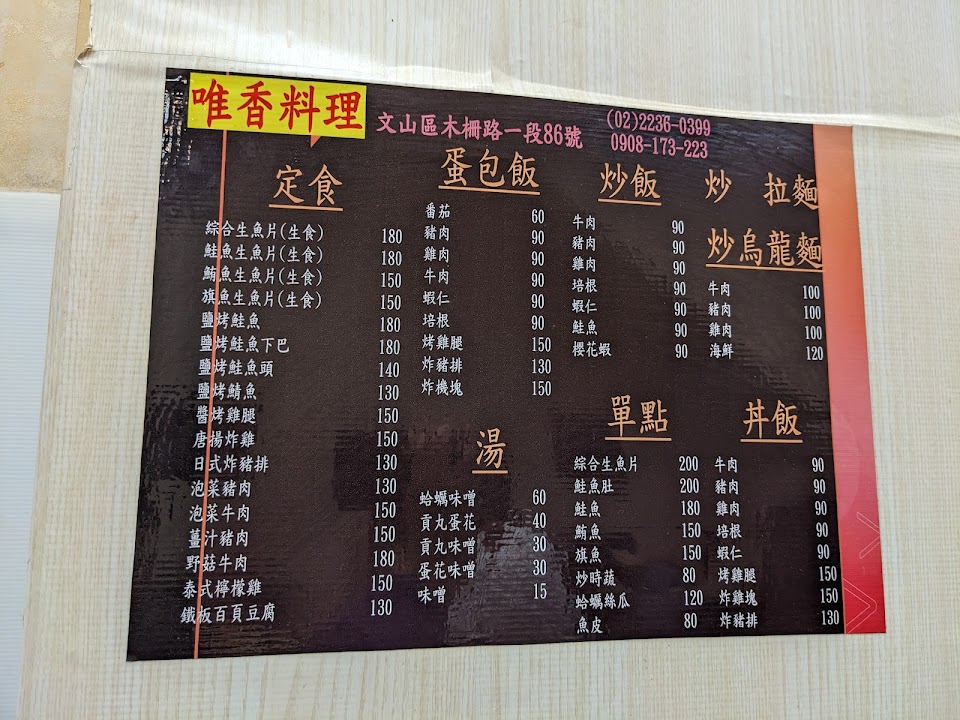 唯香料理
文山區木柵路一段86號
(02)2236-0399
0908-173-223
定食
綜合生魚片(生食) 180
鮭魚生魚片(生食) 180
鮪魚生魚片(生食) 150
旗魚生魚片(生食) 150
鹽烤鮭魚 180
鹽烤鮭魚下巴 180
鹽烤鮭魚頭 140
鹽烤鯖魚 130
醬烤雞腿 150
唐揚炸雞 150
日式炸豬排 130
泡菜豬肉 130
泡菜牛肉 150
薑汁豬肉 150
野菇牛肉 180
泰式檸檬雞 150
鐵板百頁豆腐 130
蛋包飯
番茄 60
豬肉 90
雞肉 90
牛肉 90
蝦仁 90
培根 90
烤雞腿 150
炸豬排 130
炸機塊 150
湯
蛤蠣味噌 60
貢丸蛋花 40
貢丸味噌 30
蛋花味噌 30
味噌 15
炒飯
牛肉 90
豬肉 90
雞肉 90
培根 90
蝦仁 90
鮭魚 90
櫻花蝦 90
炒 拉麵
炒烏龍麵
牛肉 100
豬肉 100
雞肉 100
海鮮 120
單點
綜合生魚片 200
鮭魚肚 200
鮭魚 180
鮪魚 150
旗魚 150
炒時蔬 80
蛤蠣絲瓜 120
魚皮 80
丼飯
牛肉 90
豬肉 90
雞肉 90
培根 90
蝦仁 90
烤雞腿 150
炸雞塊 150
炸豬排 130